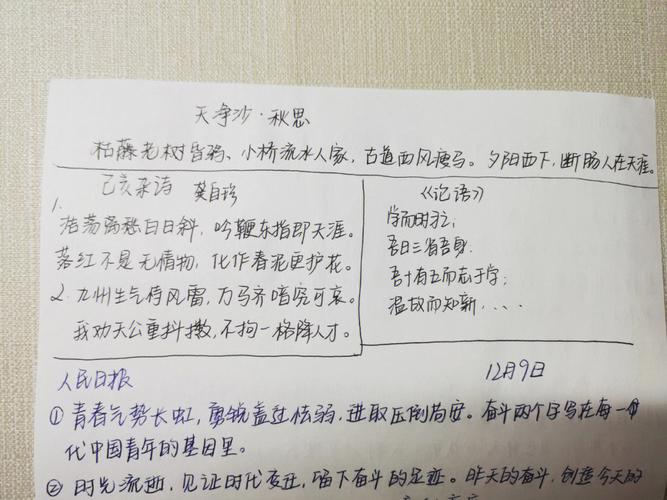 天净沙·秋思
枯藤老树昏鸦、小桥流水人家，古道西风瘦马。夕阳西下，断肠人在天涯。
己亥杂诗 龚自珍
1.
浩荡离愁白日斜，吟鞭东指即天涯。
落红不是无情物，化作春泥更护花。
2. 九州生气恃风雷，万马齐喑究可哀。
我劝天公重抖擞，不拘一格降人才。
《论语》
学而时习之；
吾日三省吾身
吾十有五而志于学；
温故而知新....
人民日报 12月9日
① 青春气势长虹，勇锐盖过怯弱，进取压倒苟安。奋斗两个字写在每一个
代中国青年的基因里。
② 时光流逝，见证时代变迁，留下奋斗的足迹。昨天的奋斗，创造今天的